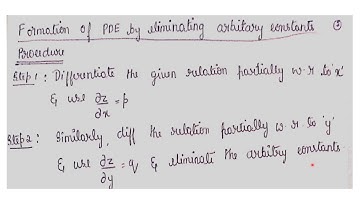 Formation of PDE by eliminating arbitary constants
Procedure
Step 1 : Differentiate the given relation partially w.r to 'x'
& use ∂z/∂x = p
Step 2 : Similarly, diff the relation partially w.r to 'y'
& use ∂z/∂y = q & eliminate the arbitry constants.